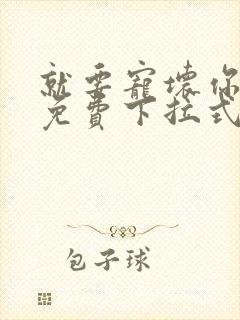 就要寵壞你
免費下拉式
包子球